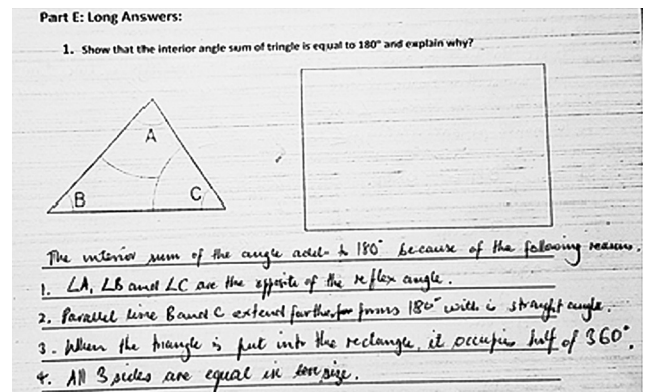 Part E: Long Answers:
1. Show that the interior angle sum of tringle is equal to 180° and explain why?
A
B
C
The interior sum of the angle add to 180° because of the following reasons.
1. ∠A, ∠B and ∠C are the opposite of the reflex angle.
2. Paralel line B and C extend further forms 180° with is straight angle.
3. When the triangle is put into the rectangle, it occupies half of 360°.
4. All 3 sides are equal in size.